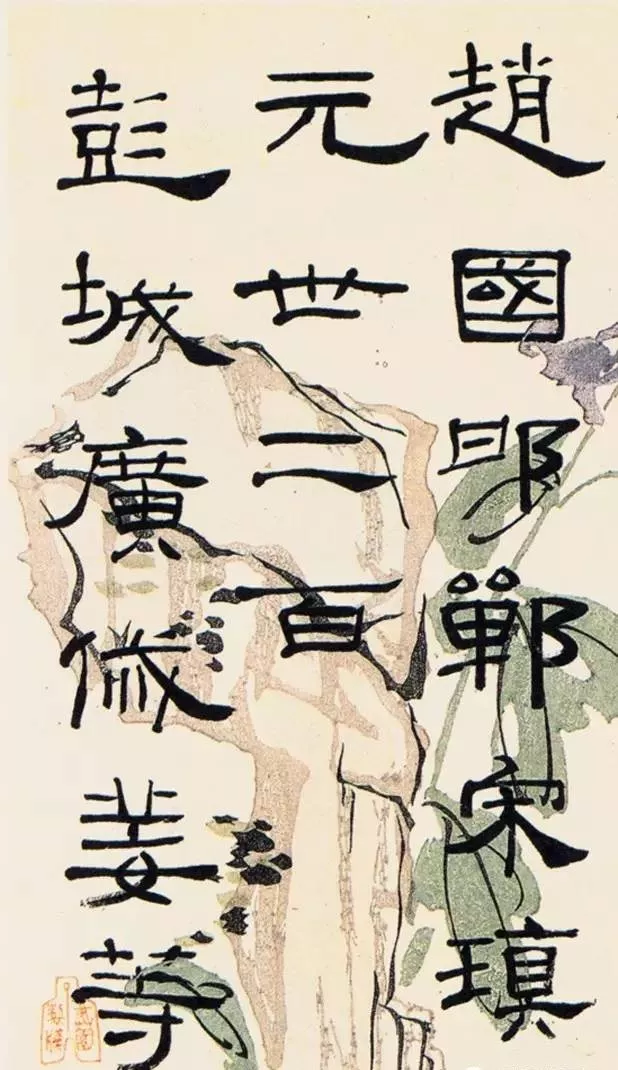 趙國邯鄲宋瑱
元世二百
彭城廣戚姜尋